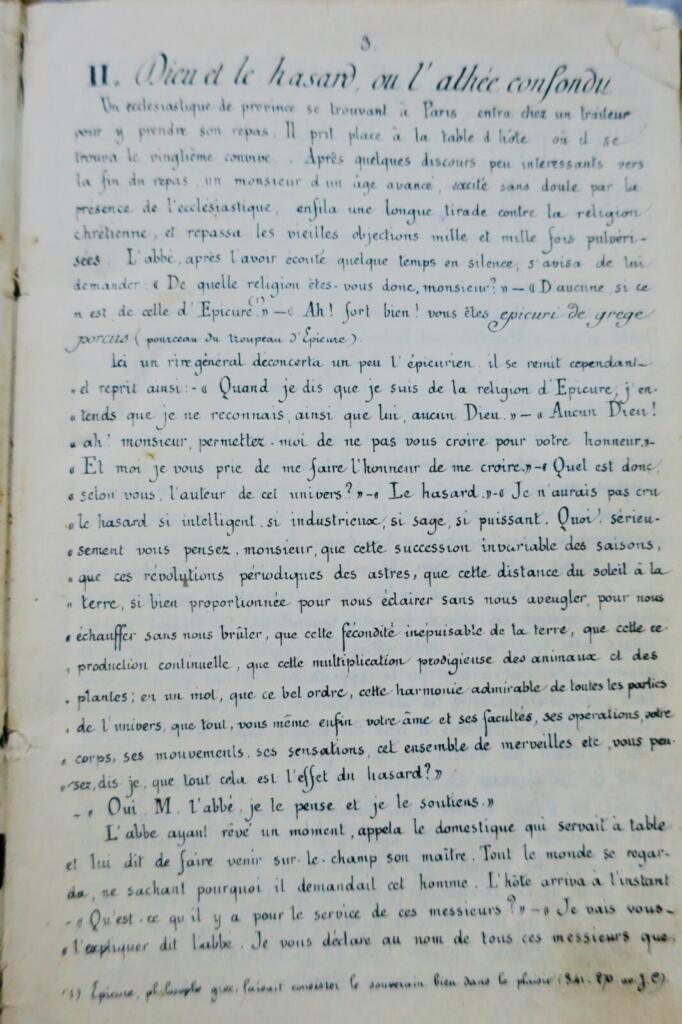 3.
II. Dieu et le hasard, ou l'athée confondu
Un ecclésiastique de province se trouvant à Paris entra chez un traiteur
pour y prendre son repas. Il prit place à la table d'hôte où il se
trouva le vingtième convive. Après quelques discours peu intéressants vers
la fin du repas, un monsieur d'un âge avancé, excité sans doute par la
présence de l'ecclésiastique, enfila une longue tirade contre la religion
chrétienne, et repassa les vieilles objections mille et mille fois pulvéri-
sées. L'abbé, après l'avoir écouté quelque temps en silence, s'avisa de lui
demander: « De quelle religion êtes-vous donc, monsieur? » — « D'aucune, si ce
n'est de celle d'Epicure (1) » — « Ah! fort bien! vous êtes epicuri de grege
porcus (pourceau du troupeau d'Epicure).
Ici un rire général déconcerta un peu l'épicurien. il se remit cependant
« et reprit ainsi: - « Quand je dis que je suis de la religion d'Epicure, j'en-
« tends que je ne reconnais, ainsi que lui, aucun Dieu. » — « Aucun Dieu!
« ah! monsieur, permettez-moi de ne pas vous croire pour votre honneur »-
« Et moi je vous prie de me faire l'honneur de me croire » - « Quel est donc
« selon vous, l'auteur de cet univers? » - « Le hasard. » - « Je n'aurais pas cru
« le hasard si intelligent, si industrieux, si sage, si puissant. Quoi! sérieu-
« sement vous pensez, monsieur, que cette succession invariable des saisons,
« que ces révolutions périodiques des astres, que cette distance du soleil à la
« terre, si bien proportionnée pour nous éclairer sans nous aveugler, pour nous
« échauffer sans nous brûler, que cette fécondité inépuisable de la terre, que cette re-
« production continuelle, que cette multiplication prodigieuse des animaux et des
« plantes; en un mot, que ce bel ordre, cette harmonie admirable de toutes les parties
« de l'univers, que tout, vous même enfin, votre âme et ses facultés, ses opérations, votre
« corps, ses mouvements, ses sensations, cet ensemble de merveilles etc, vous pen-
« sez, dis-je, que tout cela est l'effet du hasard? »
- « Oui, M. l'abbé, je le pense et je le soutiens. »
L'abbé ayant rêvé un moment, appela le domestique qui servait à table
et lui dit de faire venir sur-le-champ son maître. Tout le monde se regar-
da, ne sachant pourquoi il demandait cet homme. L'hôte arriva à l'instant
- « Qu'est-ce qu'il y a pour le service de ces messieurs? » — « Je vais vous
« l'expliquer dit l'abbé. Je vous déclare au nom de tous ces messieurs que
(1) Epicure, philosophe grec, faisait consister le souverain bien dans le plaisir (341-270 av. J.C).